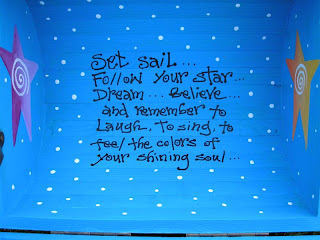 Set sail...
Follow Your Star...
Dream... Believe...
and remember to
Laugh, To sing, to
feel the colors of
your shining soul...